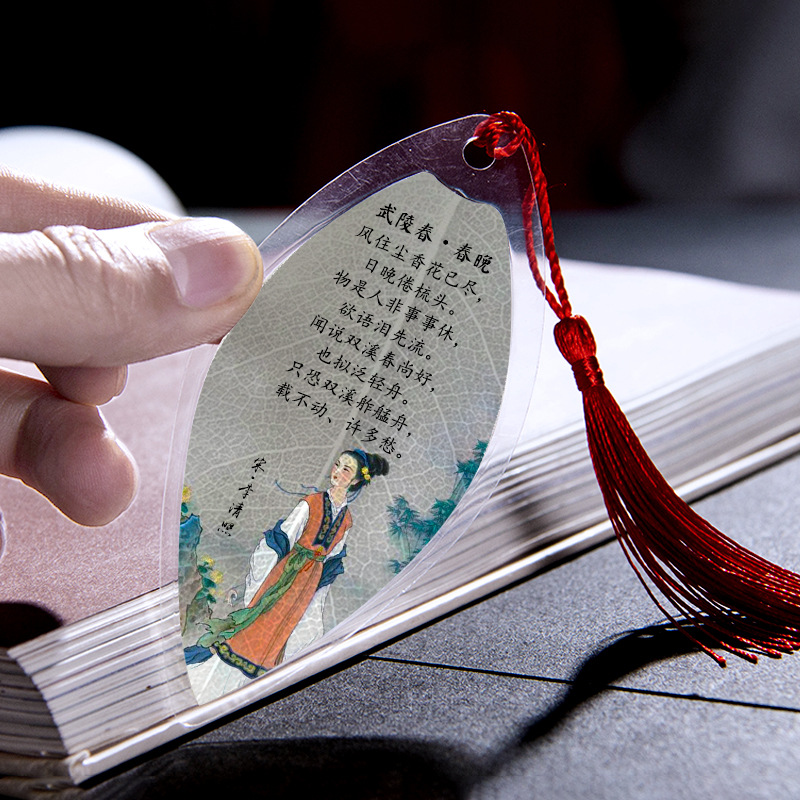 武陵春·春晚
风住尘香花已尽，
日晚倦梳头。
物是人非事事休，
欲语泪先流。
闻说双溪春尚好，
也拟泛轻舟。
只恐双溪舴艋舟，
载不动、许多愁。
宋·李清照